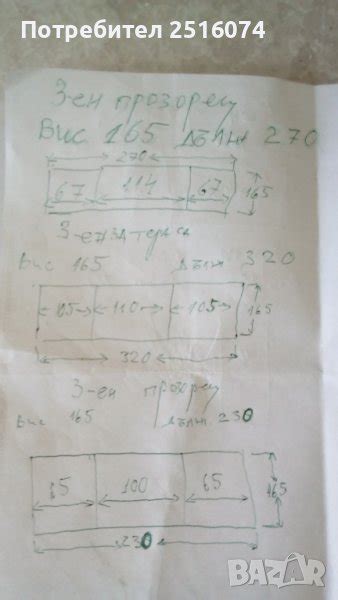 Потребител 2516074
3-ен прозорец
Вис 165 дълж 270
270
67 114 67 165
3-ен за тераса
Вис 165 дълж 320
110 105 165
320
3-ен прозорец
Вис 165 дълж 230
65 100 65 165
230
BAZAR